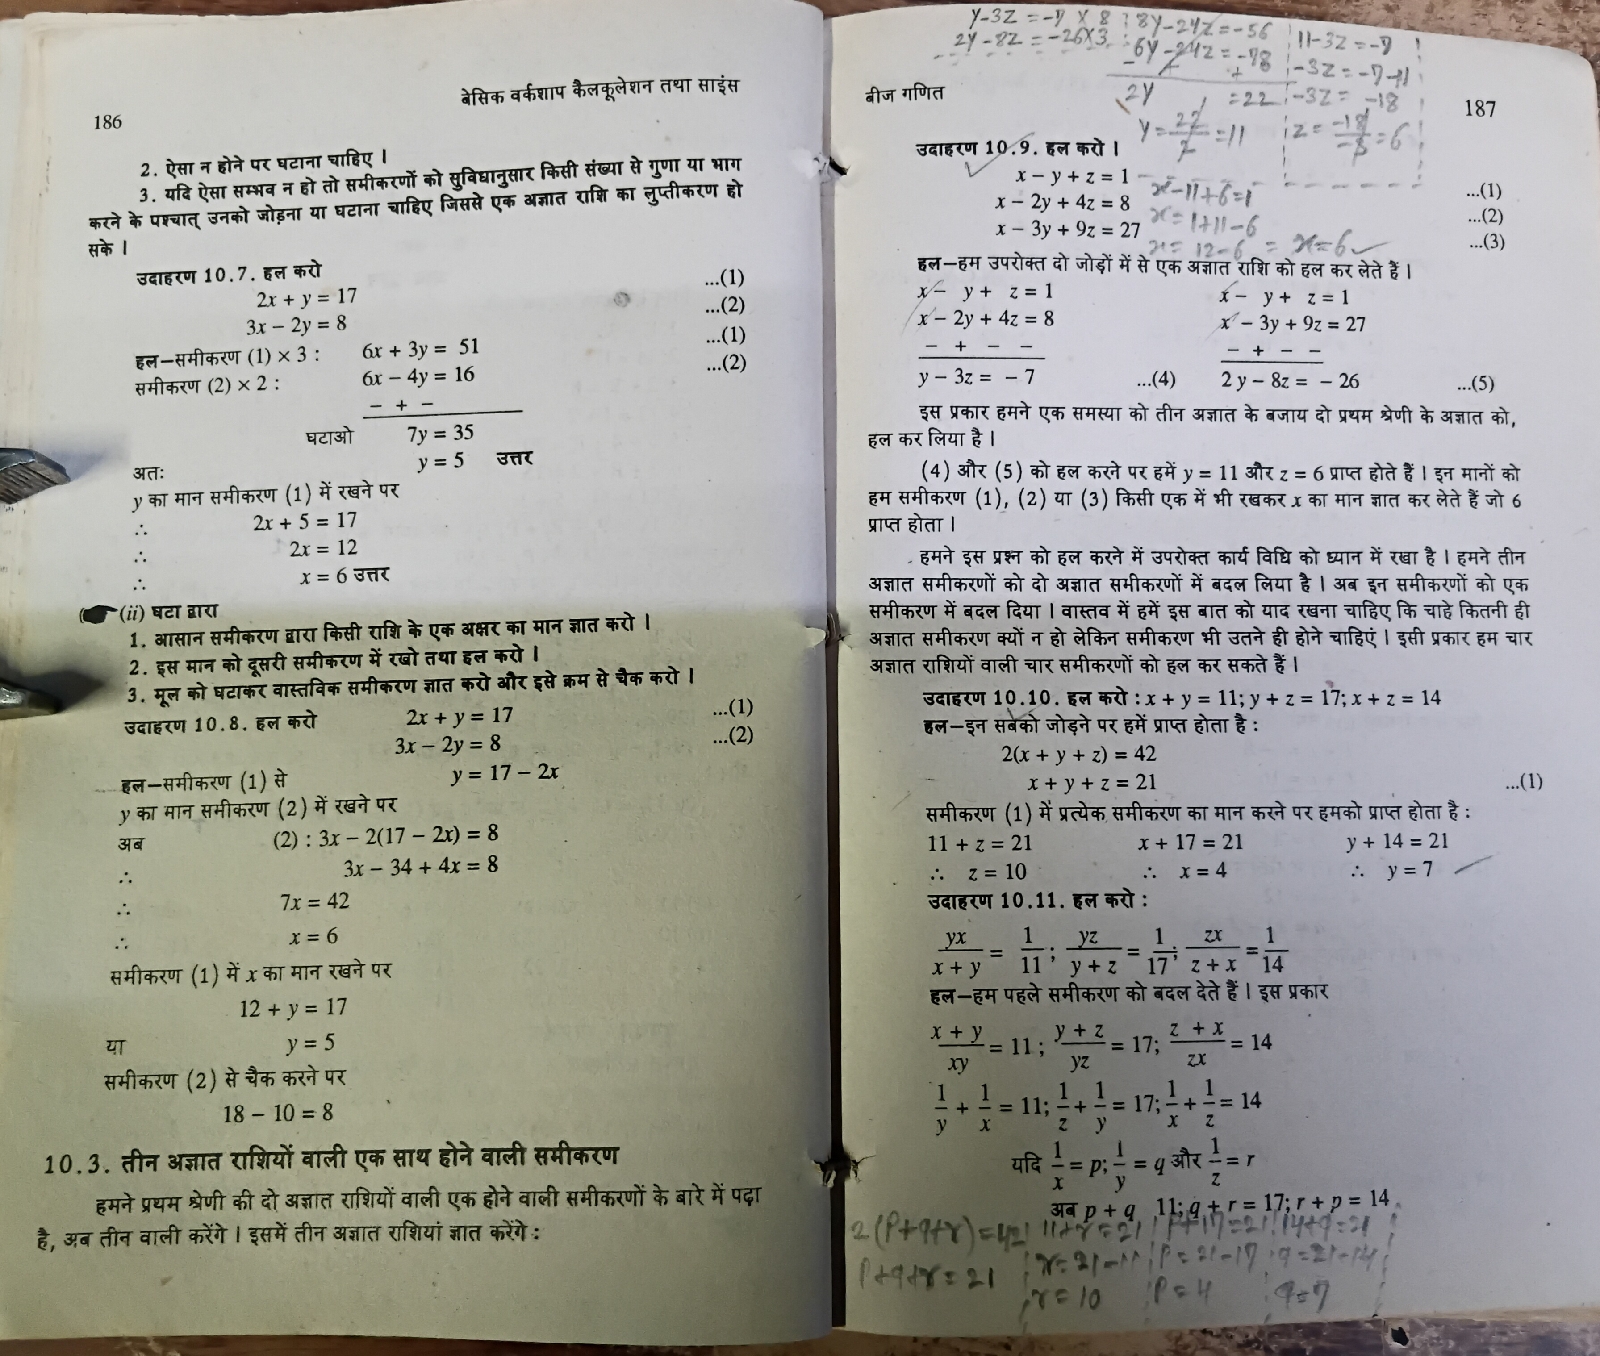 186
बेसिक वर्कशाप कैलकूलेशन तथा साइंस
2. ऐसा न होने पर घटाना चाहिए ।
3. यदि ऐसा सम्भव न हो तो समीकरणों को सुविधानुसार किसी संख्या से गुणा या भाग
करने के पश्चात् उनको जोड़ना या घटाना चाहिए जिससे एक अज्ञात राशि का लुप्तीकरण हो
सके ।
उदाहरण 10.7. हल करो
2x + y = 17 ...(1)
3x – 2y = 8 ...(2)
हल–समीकरण (1) × 3 : 6x + 3y = 51 ...(1)
समीकरण (2) × 2 : 6x – 4y = 16 ...(2)
– + –
घटाओ 7y = 35
अतः y = 5 उत्तर
y का मान समीकरण (1) में रखने पर
∴ 2x + 5 = 17
∴ 2x = 12
∴ x = 6 उत्तर
(ii) घटा द्वारा
1. आसान समीकरण द्वारा किसी राशि के एक अक्षर का मान ज्ञात करो ।
2. इस मान को दूसरी समीकरण में रखो तथा हल करो ।
3. मूल को घटाकर वास्तविक समीकरण ज्ञात करो और इसे क्रम से चैक करो ।
उदाहरण 10.8. हल करो 2x + y = 17 ...(1)
3x – 2y = 8 ...(2)
हल–समीकरण (1) से y = 17 – 2x
y का मान समीकरण (2) में रखने पर
अब (2) : 3x – 2(17 – 2x) = 8
∴ 3x – 34 + 4x = 8
∴ 7x = 42
∴ x = 6
समीकरण (1) में x का मान रखने पर
12 + y = 17
या y = 5
समीकरण (2) से चैक करने पर
18 – 10 = 8
10.3. तीन अज्ञात राशियों वाली एक साथ होने वाली समीकरण
हमने प्रथम श्रेणी की दो अज्ञात राशियों वाली एक होने वाली समीकरणों के बारे में पढ़ा
है, अब तीन वाली करेंगे । इसमें तीन अज्ञात राशियां ज्ञात करेंगे :
y-3z = -7 × 8 ; 8y-24z = -56
2y-8z = -26×3 ; 6y-24z = -78
- + +
2y = 22
y = 22/2 = 11
11-3z = -7
-3z = -7-11
-3z = -18
z = -18/-3 = 6
बीज गणित
187
उदाहरण 10.9. हल करो ।
x – y + z = 1 ...(1)
x – 2y + 4z = 8 ...(2)
x – 3y + 9z = 27 ...(3)
x-11+6=1
x=1+11-6
x= 12-6 = x=6
हल–हम उपरोक्त दो जोड़ों में से एक अज्ञात राशि को हल कर लेते हैं ।
x – y + z = 1 x – y + z = 1
x – 2y + 4z = 8 x – 3y + 9z = 27
– + – – – + – –
y – 3z = – 7 ...(4) 2y – 8z = – 26 ...(5)
इस प्रकार हमने एक समस्या को तीन अज्ञात के बजाय दो प्रथम श्रेणी के अज्ञात को,
हल कर लिया है ।
(4) और (5) को हल करने पर हमें y = 11 और z = 6 प्राप्त होते हैं । इन मानों को
हम समीकरण (1), (2) या (3) किसी एक में भी रखकर x का मान ज्ञात कर लेते हैं जो 6
प्राप्त होता ।
हमने इस प्रश्न को हल करने में उपरोक्त कार्य विधि को ध्यान में रखा है । हमने तीन
अज्ञात समीकरणों को दो अज्ञात समीकरणों में बदल लिया है । अब इन समीकरणों को एक
समीकरण में बदल दिया । वास्तव में हमें इस बात को याद रखना चाहिए कि चाहे कितनी ही
अज्ञात समीकरण क्यों न हो लेकिन समीकरण भी उतने ही होने चाहिएं । इसी प्रकार हम चार
अज्ञात राशियों वाली चार समीकरणों को हल कर सकते हैं ।
उदाहरण 10.10. हल करो : x + y = 11; y + z = 17; x + z = 14
हल–इन सबको जोड़ने पर हमें प्राप्त होता है :
2(x + y + z) = 42
x + y + z = 21 ...(1)
समीकरण (1) में प्रत्येक समीकरण का मान करने पर हमको प्राप्त होता है :
11 + z = 21 x + 17 = 21 y + 14 = 21
∴ z = 10 ∴ x = 4 ∴ y = 7
उदाहरण 10.11. हल करो :
yx/(x + y) = 1/11 ; yz/(y + z) = 1/17; zx/(z + x) = 1/14
हल–हम पहले समीकरण को बदल देते हैं । इस प्रकार
(x + y)/xy = 11 ; (y + z)/yz = 17; (z + x)/zx = 14
1/y + 1/x = 11; 1/z + 1/y = 17; 1/x + 1/z = 14
यदि 1/x = p; 1/y = q और 1/z = r
अब p + q 11; q + r = 17; r + p = 14
2(p+q+r)=42 11+r=21 p+17=21 14+q=21
p+q+r=21 r=21-11 p=21-17 q=21-14
r=10 p=4 q=7